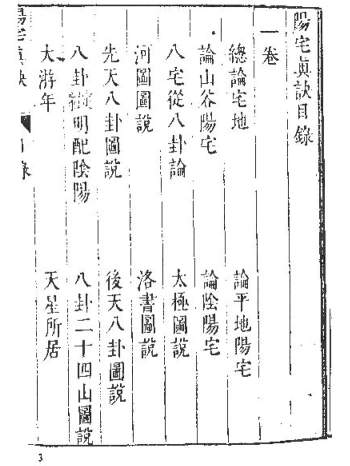 陽宅眞訣目錄
一卷
總論宅地 論平地陽宅
論山谷陽宅 論陰陽宅
八宅從八卦論 太極圖說
河圖圖說 洛書圖說
先天八卦圖說 後天八卦圖說
八卦明配陰陽 八卦二十四山圖說
大游年 天星所居
陽宅眞訣 目錄
3